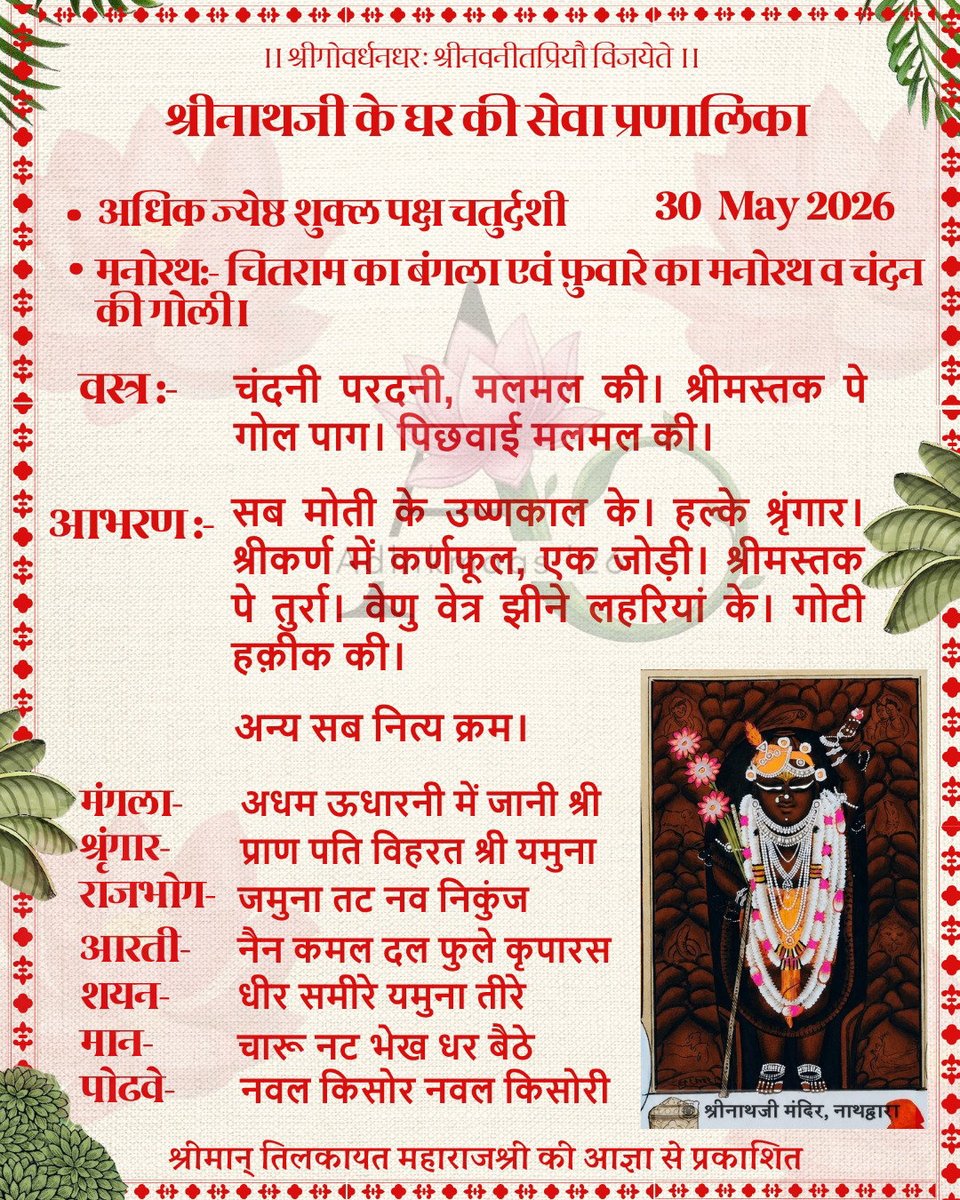 ।। श्रीगोवर्धनधरः श्रीनवनीतप्रियौ विजयेते ।।
श्रीनाथजी के घर की सेवा प्रणालिका
• अधिक ज्येष्ठ शुक्ल पक्ष चतुर्दशी 30 May 2026
• मनोरथ:- चितराम का बंगला एवं फ़ुवारे का मनोरथ व चंदन
की गोली।
वस्त्र :- चंदनी परदनी, मलमल की। श्रीमस्तक पे
गोल पाग। पिछवाई मलमल की।
आभरण :- सब मोती के उष्णकाल के। हल्के श्रृंगार।
श्रीकर्ण में कर्णफूल, एक जोड़ी। श्रीमस्तक
पे तुर्रा। वेणु वेत्र झीने लहरियां के। गोटी
हक़ीक की।
अन्य सब नित्य क्रम।
मंगला- अधम ऊधारनी में जानी श्री
श्रृंगार- प्राण पति विहरत श्री यमुना
राजभोग- जमुना तट नव निकुंज
आरती- नैन कमल दल फुले कृपारस
शयन- धीर समीरे यमुना तीरे
मान- चारू नट भेख धर बैठे
पोढवे- नवल किसोर नवल किसोरी
श्रीनाथजी मंदिर, नाथद्वारा
श्रीमान् तिलकायत महाराजश्री की आज्ञा से प्रकाशित